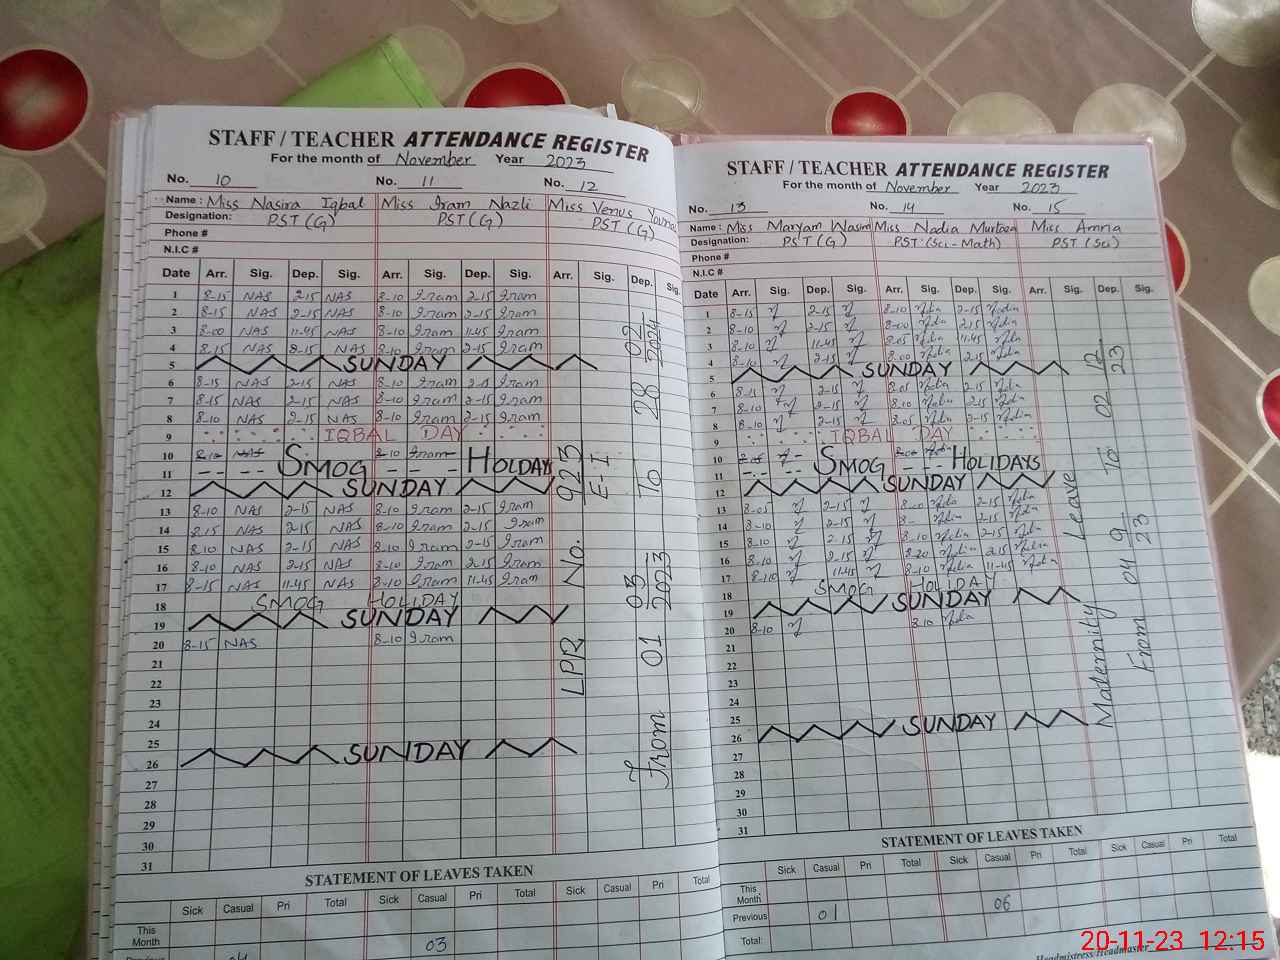 STAFF / TEACHER ATTENDANCE REGISTER
For the month of November Year 2023
No. 10 No. 11 No. 12
Name : Miss Nasira Iqbal Miss Iram Nazli Miss Venus
Designation: PST (G) PST (G) PST (G)
Phone #
N.I.C #
Date Arr. Sig. Dep. Sig. Arr. Sig. Dep. Sig. Arr. Sig. Dep. Sig.
1 8-15 NAS 2-15 NAS 8-10 Iram 2-15 Iram
2 8-15 NAS 2-15 NAS 8-10 Iram 2-15 Iram
3 8-00 NAS 11-45 NAS 8-10 Iram 11-45 Iram
4 8-15 NAS 2-15 NAS 8-10 Iram 2-15 Iram
5 SUNDAY
6 8-15 NAS 2-15 NAS 8-10 Iram 2-15 Iram
7 8-15 NAS 2-15 NAS 8-10 Iram 2-15 Iram
8 8-10 NAS 2-15 NAS 8-10 Iram 2-15 Iram
9 IQBAL DAY
10 8-10 NAS 8-10 Iram
11 SMOG HOLDAYS
12 SUNDAY
13 8-10 NAS 2-15 NAS 8-10 Iram 2-15 Iram
14 8-15 NAS 2-15 NAS 8-10 Iram 2-15 Iram
15 8-10 NAS 2-15 NAS 8-10 Iram 2-15 Iram
16 8-10 NAS 2-15 NAS 8-10 Iram 2-15 Iram
17 8-15 NAS 11-45 NAS 8-10 Iram 11-45 Iram
18 SMOG HOLIDAY
19 SUNDAY
20 8-15 NAS 8-10 Iram
21
22
23
24
25
26 SUNDAY
27
28
29
30
31
LPR No. 923 E-I
From 01 03 2023 To 28 02 2024
STATEMENT OF LEAVES TAKEN
Sick Casual Pri Total Sick Casual Pri Total Sick Casual Pri Total
This Month
03
STAFF / TEACHER ATTENDANCE REGISTER
For the month of November Year 2023
No. 13 No. 14 No. 15
Name : Miss Maryam Wasim Miss Nadia Murtaza Miss Amna
Designation: PST (G) PST (Sci-Math) PST (Sci)
Phone #
N.I.C #
Date Arr. Sig. Dep. Sig. Arr. Sig. Dep. Sig. Arr. Sig. Dep. Sig.
1 8-15 2-15 8-10 2-15
2 8-10 2-15 8-00 2-15
3 8-10 11-45 8-05 11-45
4 8-10 2-15 8-00 2-15
5 SUNDAY
6 8-15 2-15 8-05 2-15
7 8-10 2-15 8-10 2-15
8 8-10 2-15 8-05 2-15
9 IQBAL DAY
10
11 SMOG HOLIDAYS
12 SUNDAY
13 8-05 2-15 8-00 2-15
14 8-10 2-15 2-15
15 8-10 2-15 8-10 2-15
16 8-10 2-15 8-20 2-15
17 8-10 11-45 8-10 11-45
18 SMOG HOLIDAY
19 SUNDAY
20 8-10 8-10
21
22
23
24
25
26 SUNDAY
27
28
29
30
31
Maternity Leave
From 04 9 23 To 02 12 23
STATEMENT OF LEAVES TAKEN
Sick Casual Pri Total Sick Casual Pri Total Sick Casual Pri Total
This Month
Previous 01 06
Total:
Headmistress/Headmaster
20-11-23 12:15